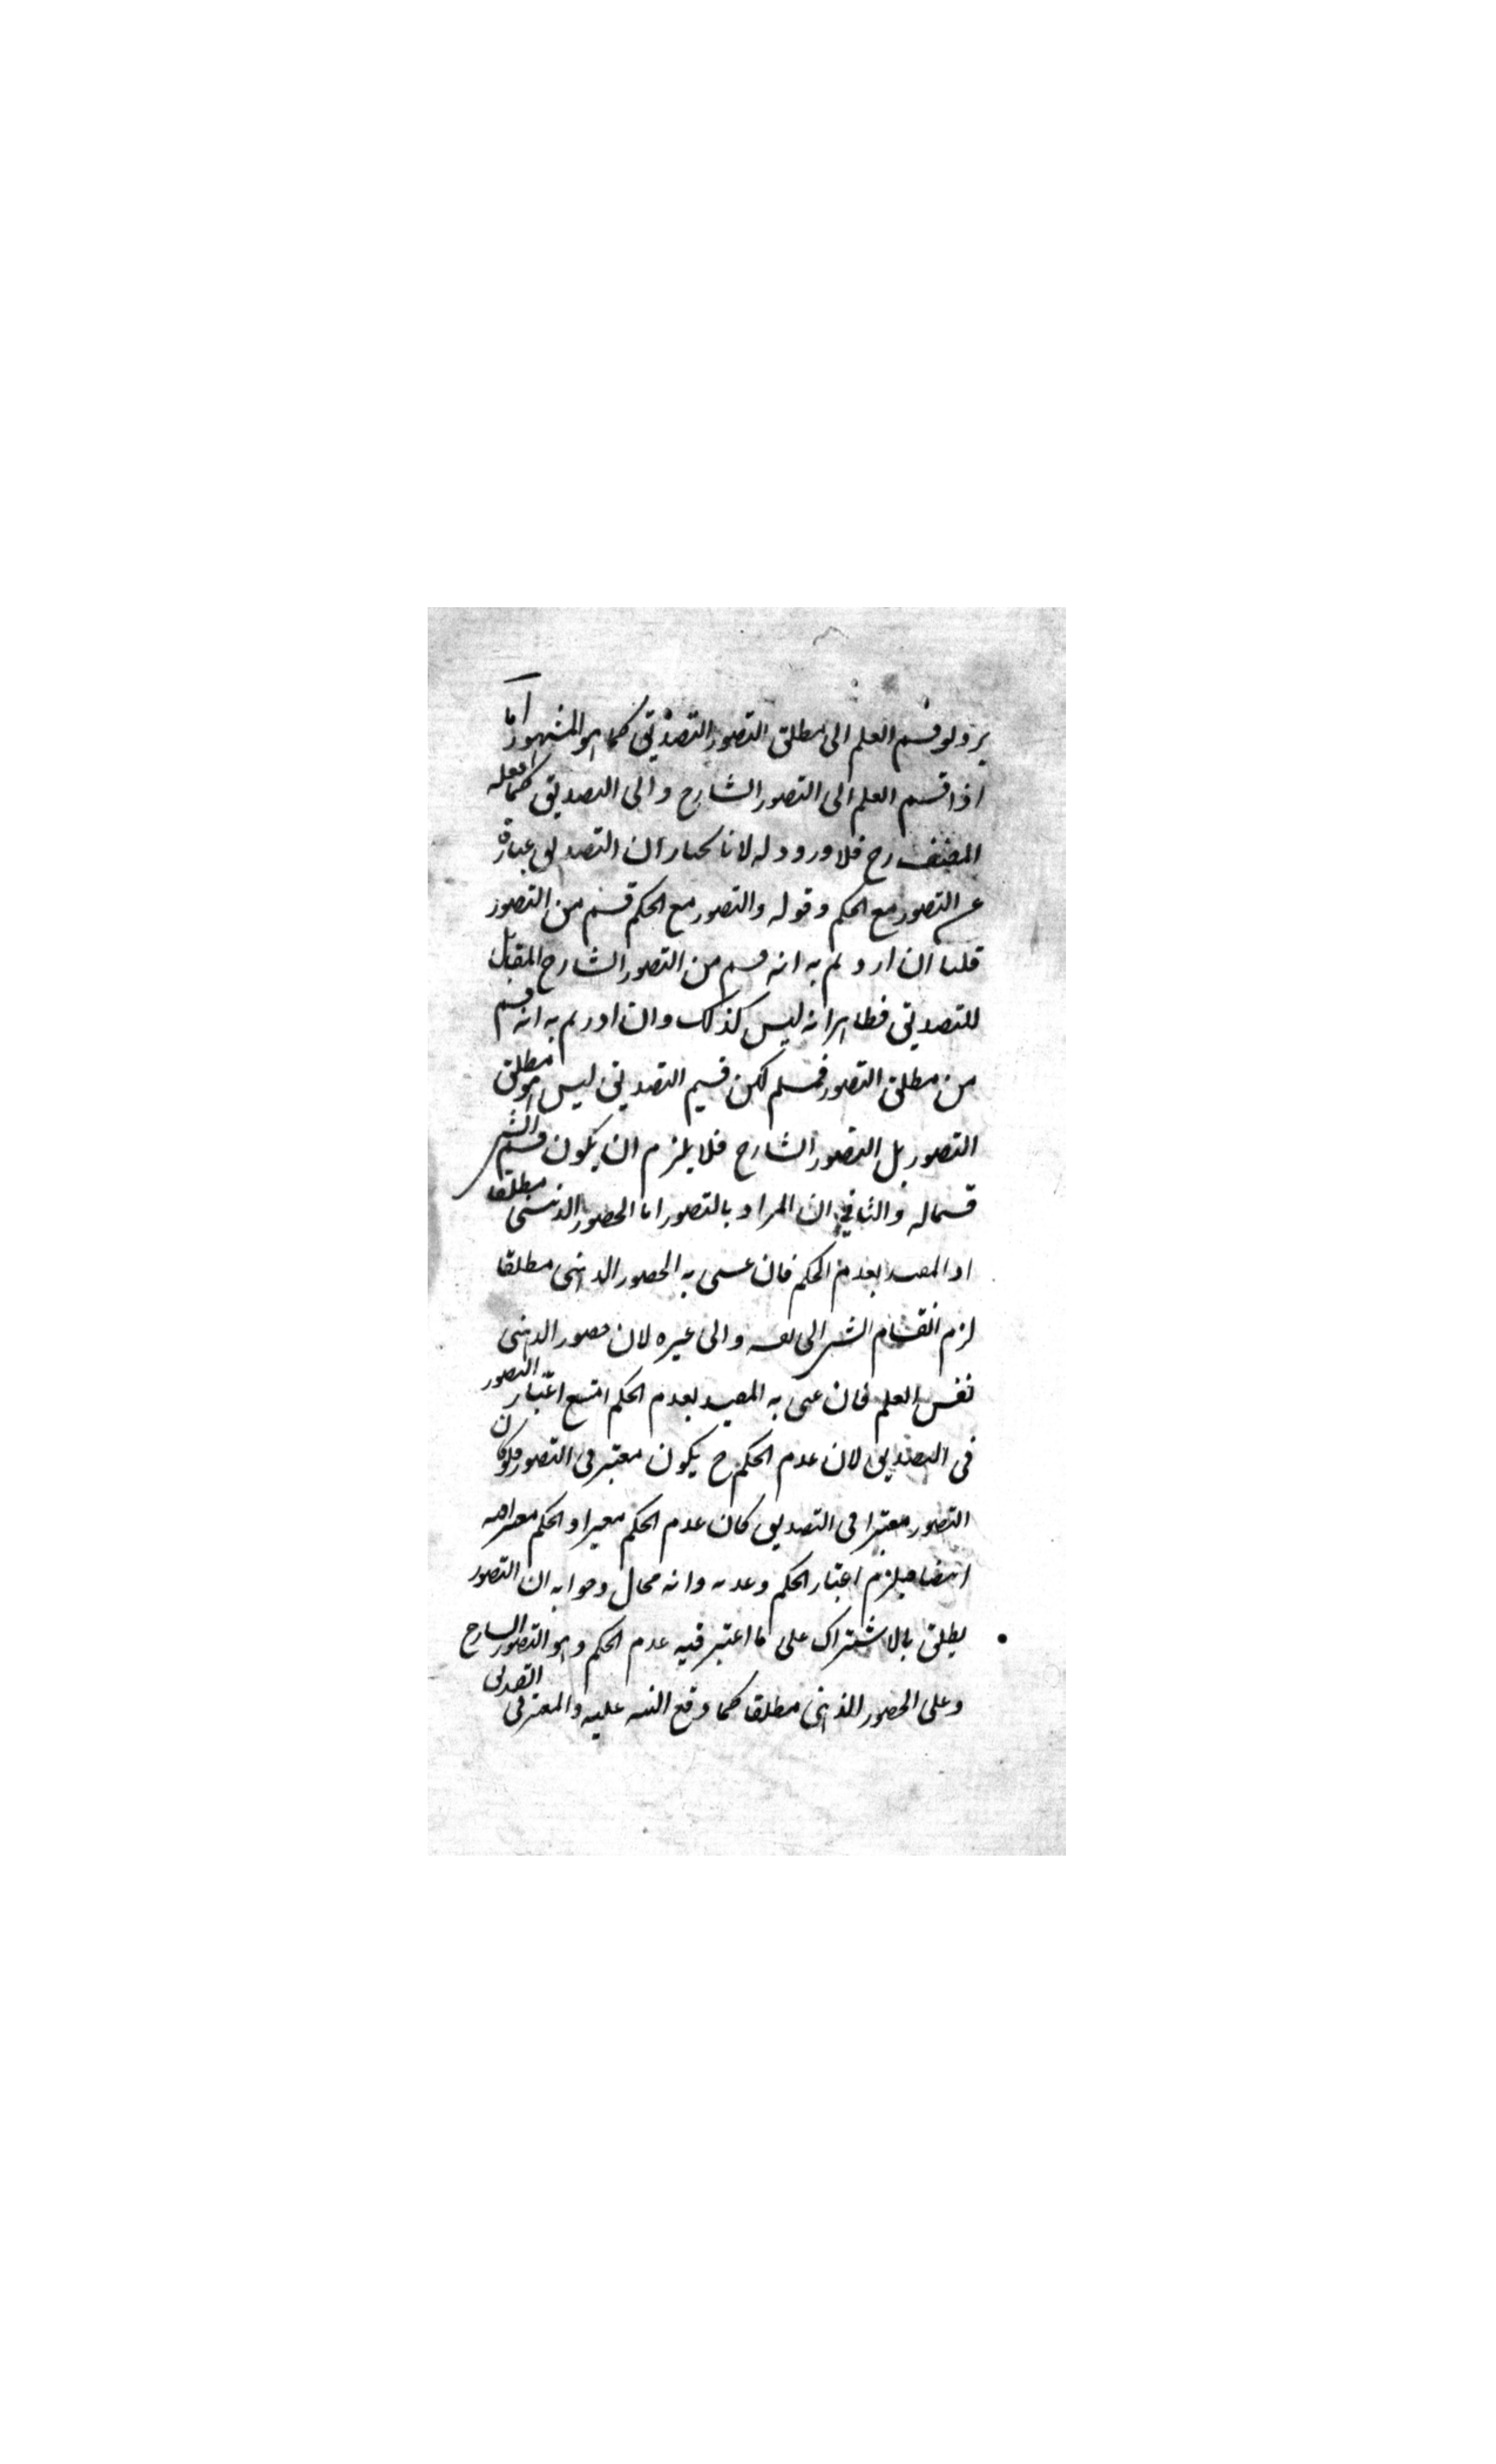 يرد لو قسم العلم الى مطلق التصور والتصديق كما هو المشهور اما
اذا قسم العلم الى التصور الساذج والى التصديق كما فعله
المصنف رح فلا ورود له لانا نختار ان التصديق عبارة
عن التصور مع الحكم وقوله والتصور مع الحكم قسم من التصور
قلنا ان اردتم به انه قسم من التصور الساذج المقابل
للتصديق فظاهر انه ليس كذلك وان اردتم به انه قسم
من مطلق التصور فمسلم لكن قسيم التصديق ليس هو مطلق
التصور بل التصور الساذج فلا يلزم ان يكون قسم الشئ
قسيما له والثاني ان المراد بالتصور اما الحضور الذهنى مطلقا
او المقيد بعدم الحكم فان عنى به الحضور الذهنى مطلقا
لزم انقسام الشئ الى نفسه والى غيره لان حضور الذهنى
نفس العلم فان عنى به المقيد بعدم الحكم امتنع اعتبار التصور
فى التصديق لان عدم الحكم ح يكون معتبر فى التصور فلو كان
التصور معتبرا فى التصديق كان عدم الحكم معتبرا والحكم معتبرا فيه
ايضا فيلزم اعتبار الحكم وعدمه وانه محال وجوابه ان التصور
يطلق بالاشتراك على ما اعتبر فيه عدم الحكم وهو التصور الساذج
وعلى الحضور الذهنى مطلقا كما وقع التنبيه عليه والمعتبر فى التصديق